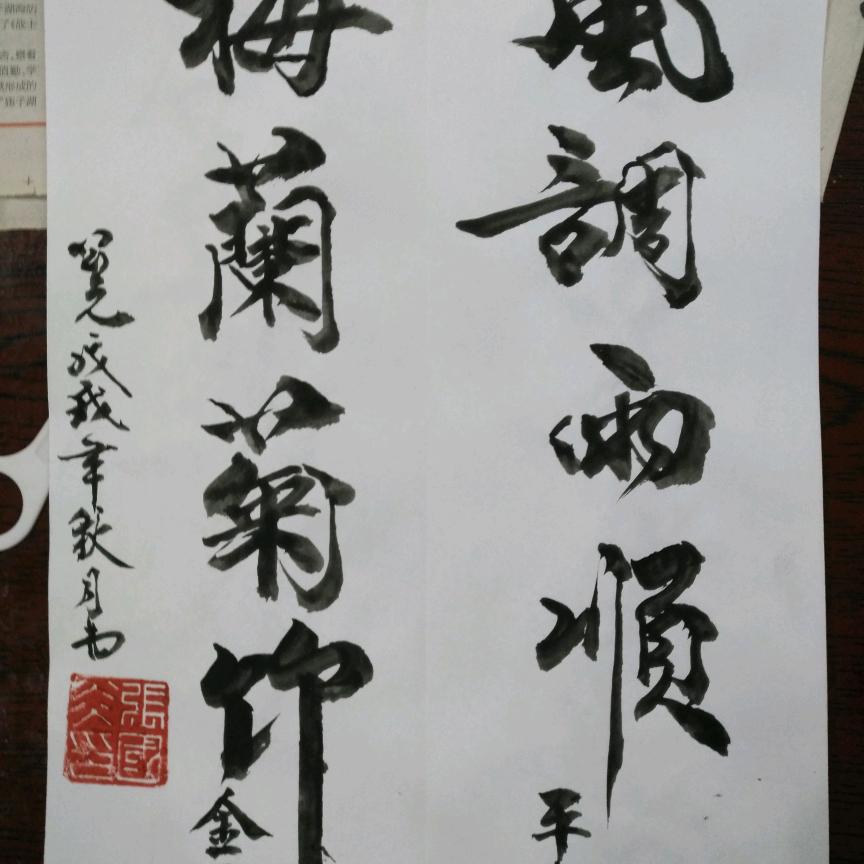 風調雨順
平
梅蘭菊竹
金
戊戌年秋月书
張國炎印